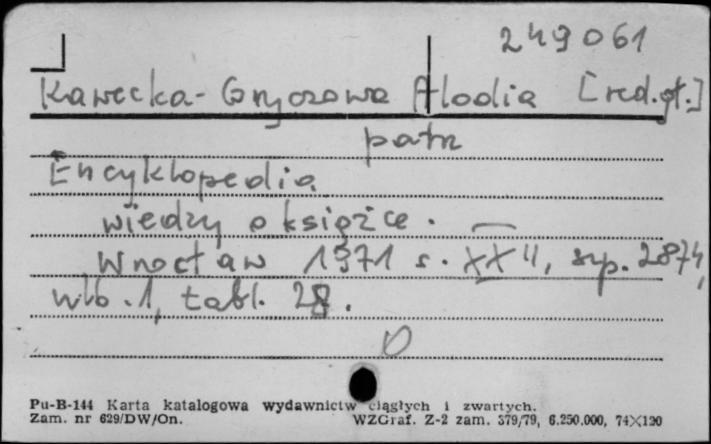 249061
Kawecka-Gryczowa Alodia [red.gł.]
patrz
Encyklopedia
wiedzy o książce.
Wrocław 1971 s. XXII, szp. 2874,
nlb. 1, tabl. 28.
Pu-B-144 Karta katalogowa wydawnictw ciągłych i zwartych.
Zam. nr 629/DW/On. WZGraf. Z-2 zam. 379/79, 6.250.000, 74X120